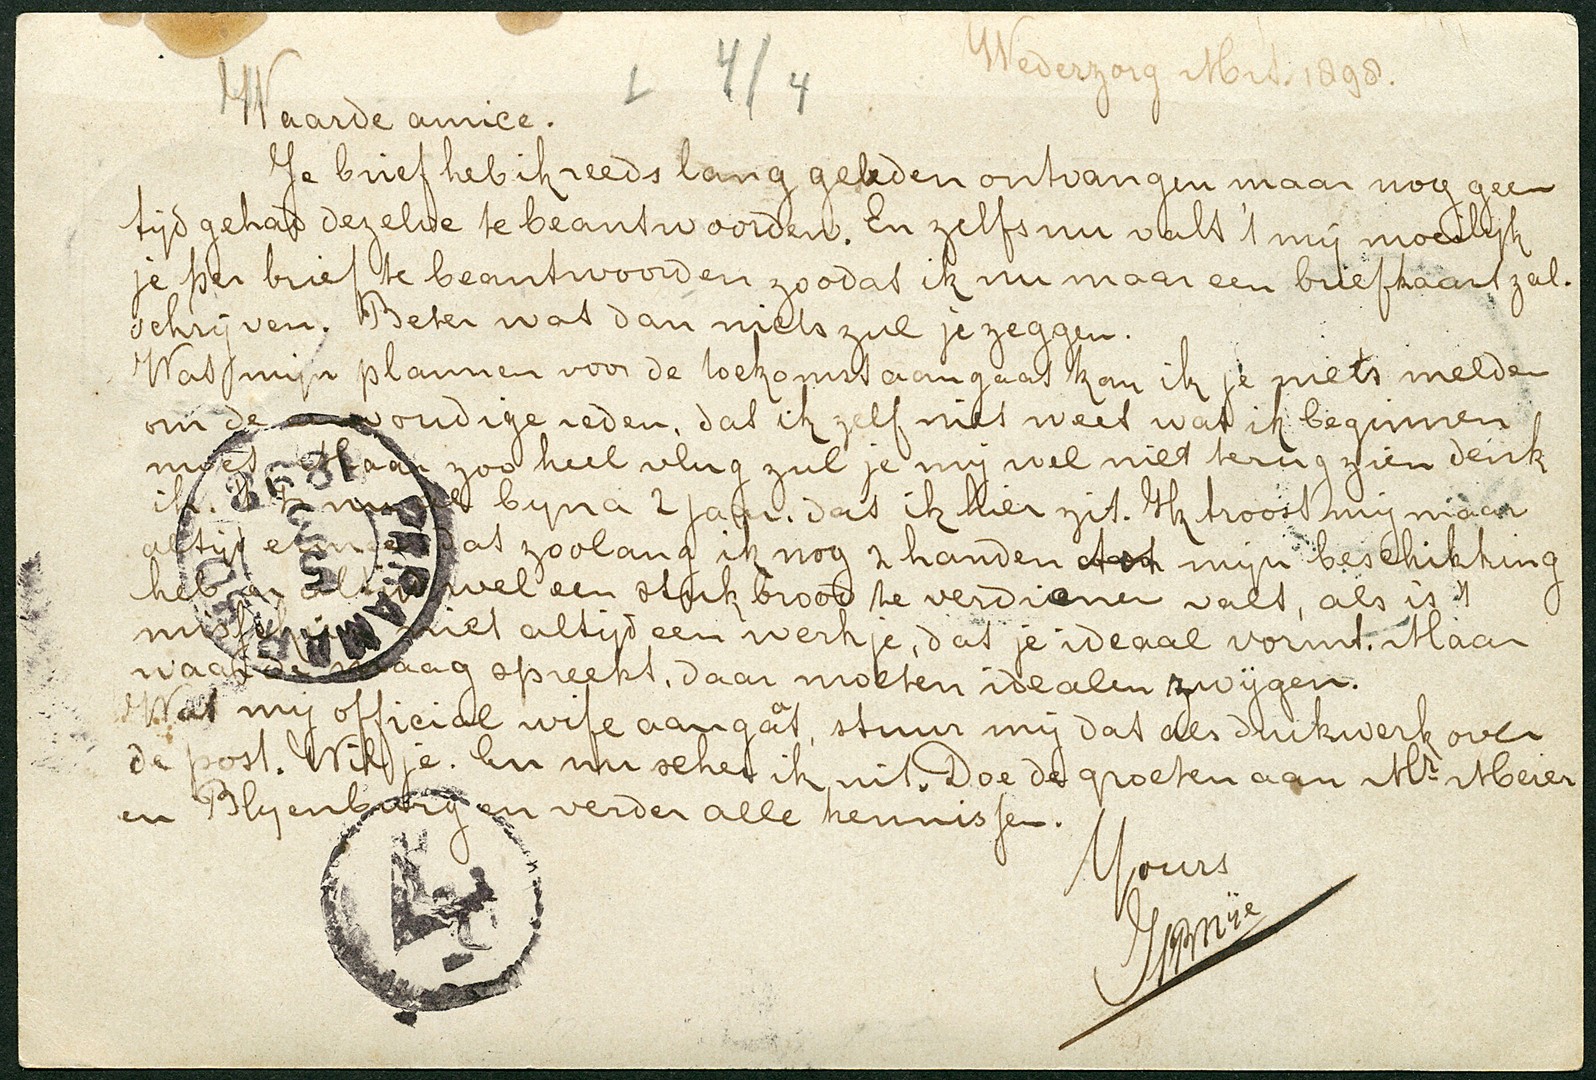 L 4/4
Wederzorg Mrt. 1898.
Waarde amice.
Je brief heb ik reeds lang geleden ontvangen maar nog geen
tijd gehad dezelve te beantwoorden. En zelfs nu valt 't mij moeilijk
je per brief te beantwoorden zoodat ik nu maar een briefkaart zal.
schrijven. Beter wat dan niets zul je zeggen.
Wat mijn plannen voor de toekomst aangaat kan ik je niets melden
om de voudige reden, dat ik zelf niet weet wat ik beginnen
moet. Maar zoo heel vlug zul je mij wel niet terug zien denk
ik. Ik nu al byna 2 jaar. dat ik hier zit. Ik troost mij maar
altijd ermee dat zoolang ik nog 2 handen tot mijn beschikking
heb er altijd wel een stuk brood te verdienen valt, als is 't
misschien niet altijd een werkje, dat je ideaal vormt. Maar
waar de maag spreekt, daar moeten idealen zwijgen.
Wat mij official wife aangaat, stuur mij dat als drukwerk over
de post. Wil je. En nu schei ik uit. Doe de groeten aan Mr. Meier
en Blyenburg en verder alle kennissen.
Yours
1898
PARAMARIBO